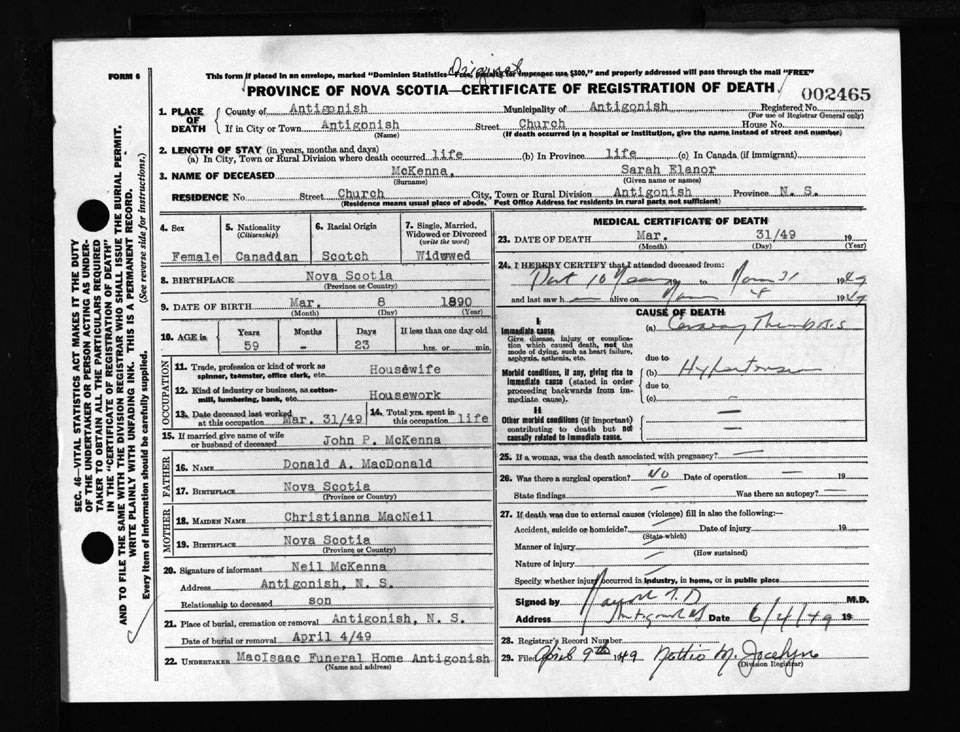 FORM 6
Original
This form if placed in an envelope, marked "Dominion Statistics—Free, penalty for improper use $300," and properly addressed will pass through the mail "FREE"
PROVINCE OF NOVA SCOTIA—CERTIFICATE OF REGISTRATION OF DEATH
002465
1. PLACE OF DEATH
County of Antigonish Municipality of Antigonish Registered No.
(For use of Registrar General only)
If in City or Town Antigonish Street Church House No.
(Name) (If death occurred in a hospital or institution, give the name instead of street and number)
2. LENGTH OF STAY (in years, months and days)
(a) In City, Town or Rural Division where death occurred life (b) In Province life (c) In Canada (if immigrant)
3. NAME OF DECEASED McKenna, Sarah Elanor
(Surname) (Given name or names)
RESIDENCE No. Street Church City, Town or Rural Division Antigonish Province N. S.
(Residence means usual place of abode. Post Office Address for residents in rural parts not sufficient)
4. Sex
Female
5. Nationality
(Citizenship)
Canaddan
6. Racial Origin
Scotch
7. Single, Married, Widowed or Divorced
(write the word)
Widwwed
8. BIRTHPLACE Nova Scotia
(Province or Country)
9. DATE OF BIRTH Mar. 8 1890
(Month) (Day) (Year)
10. AGE in Years Months Days If less than one day old
59 - 23 hrs. or min.
OCCUPATION
11. Trade, profession or kind of work as spinner, teamster, office clerk, etc. Housewife
12. Kind of industry or business, as cotton-mill, lumbering, bank, etc. Housework
13. Date deceased last worked at this occupation Mar. 31/49
14. Total yrs. spent in this occupation life
15. If married give name of wife or husband of deceased John P. McKenna
FATHER
16. NAME Donald A. MacDonald
17. BIRTHPLACE Nova Scotia
(Province or Country)
MOTHER
18. MAIDEN NAME Christianna MacNeil
19. BIRTHPLACE Nova Scotia
(Province or Country)
20. Signature of informant Neil McKenna
Address Antigonish, N. S.
Relationship to deceased son
21. Place of burial, cremation or removal Antigonish, N. S.
Date of burial or removal April 4/49
22. UNDERTAKER MacIsaac Funeral Home Antigonish
(Name and address)
MEDICAL CERTIFICATE OF DEATH
23. DATE OF DEATH Mar. 31/49 19
(Month) (Day) (Year)
24. I HEREBY CERTIFY that I attended deceased from:
Past 10 Years 19 to Mar 31 1949
and last saw h alive on Mar 1949
CAUSE OF DEATH
I
Immediate cause
Give disease, injury or complication which caused death, not the mode of dying, such as heart failure, asphyxia, asthenia, etc.
(a) Thrombosis
due to
Morbid conditions, if any, giving rise to immediate cause (stated in order proceeding backwards from immediate cause).
(b) Hypertension
due to
(c) —
II
Other morbid conditions (if important) contributing to death but not causally related to immediate cause.
25. If a woman, was the death associated with pregnancy? —
26. Was there a surgical operation? NO Date of operation — 19
State findings Was there an autopsy? —
27. If death was due to external causes (violence) fill in also the following:—
Accident, suicide or homicide? Date of injury 19
(State which)
Manner of injury
(How sustained)
Nature of injury
Specify whether injury occurred in industry, in home, or in public place
Signed by M.D.
Address Antigonish Date 6/4/49 19
28. Registrar's Record Number
29. Filed April 9th 1949 Nettie M. Jocelyn
(Division Registrar)
SEC. 46—VITAL STATISTICS ACT MAKES IT THE DUTY
OF THE UNDERTAKER OR PERSON ACTING AS UNDER-
TAKER TO OBTAIN ALL THE PARTICULARS REQUIRED
IN THE "CERTIFICATE OF REGISTRATION OF DEATH"
AND TO FILE THE SAME WITH THE DIVISION REGISTRAR WHO SHALL ISSUE THE BURIAL PERMIT.
WRITE PLAINLY WITH UNFADING INK. THIS IS A PERMANENT RECORD.
Every item of Information should be carefully supplied. (See reverse side for instructions.)